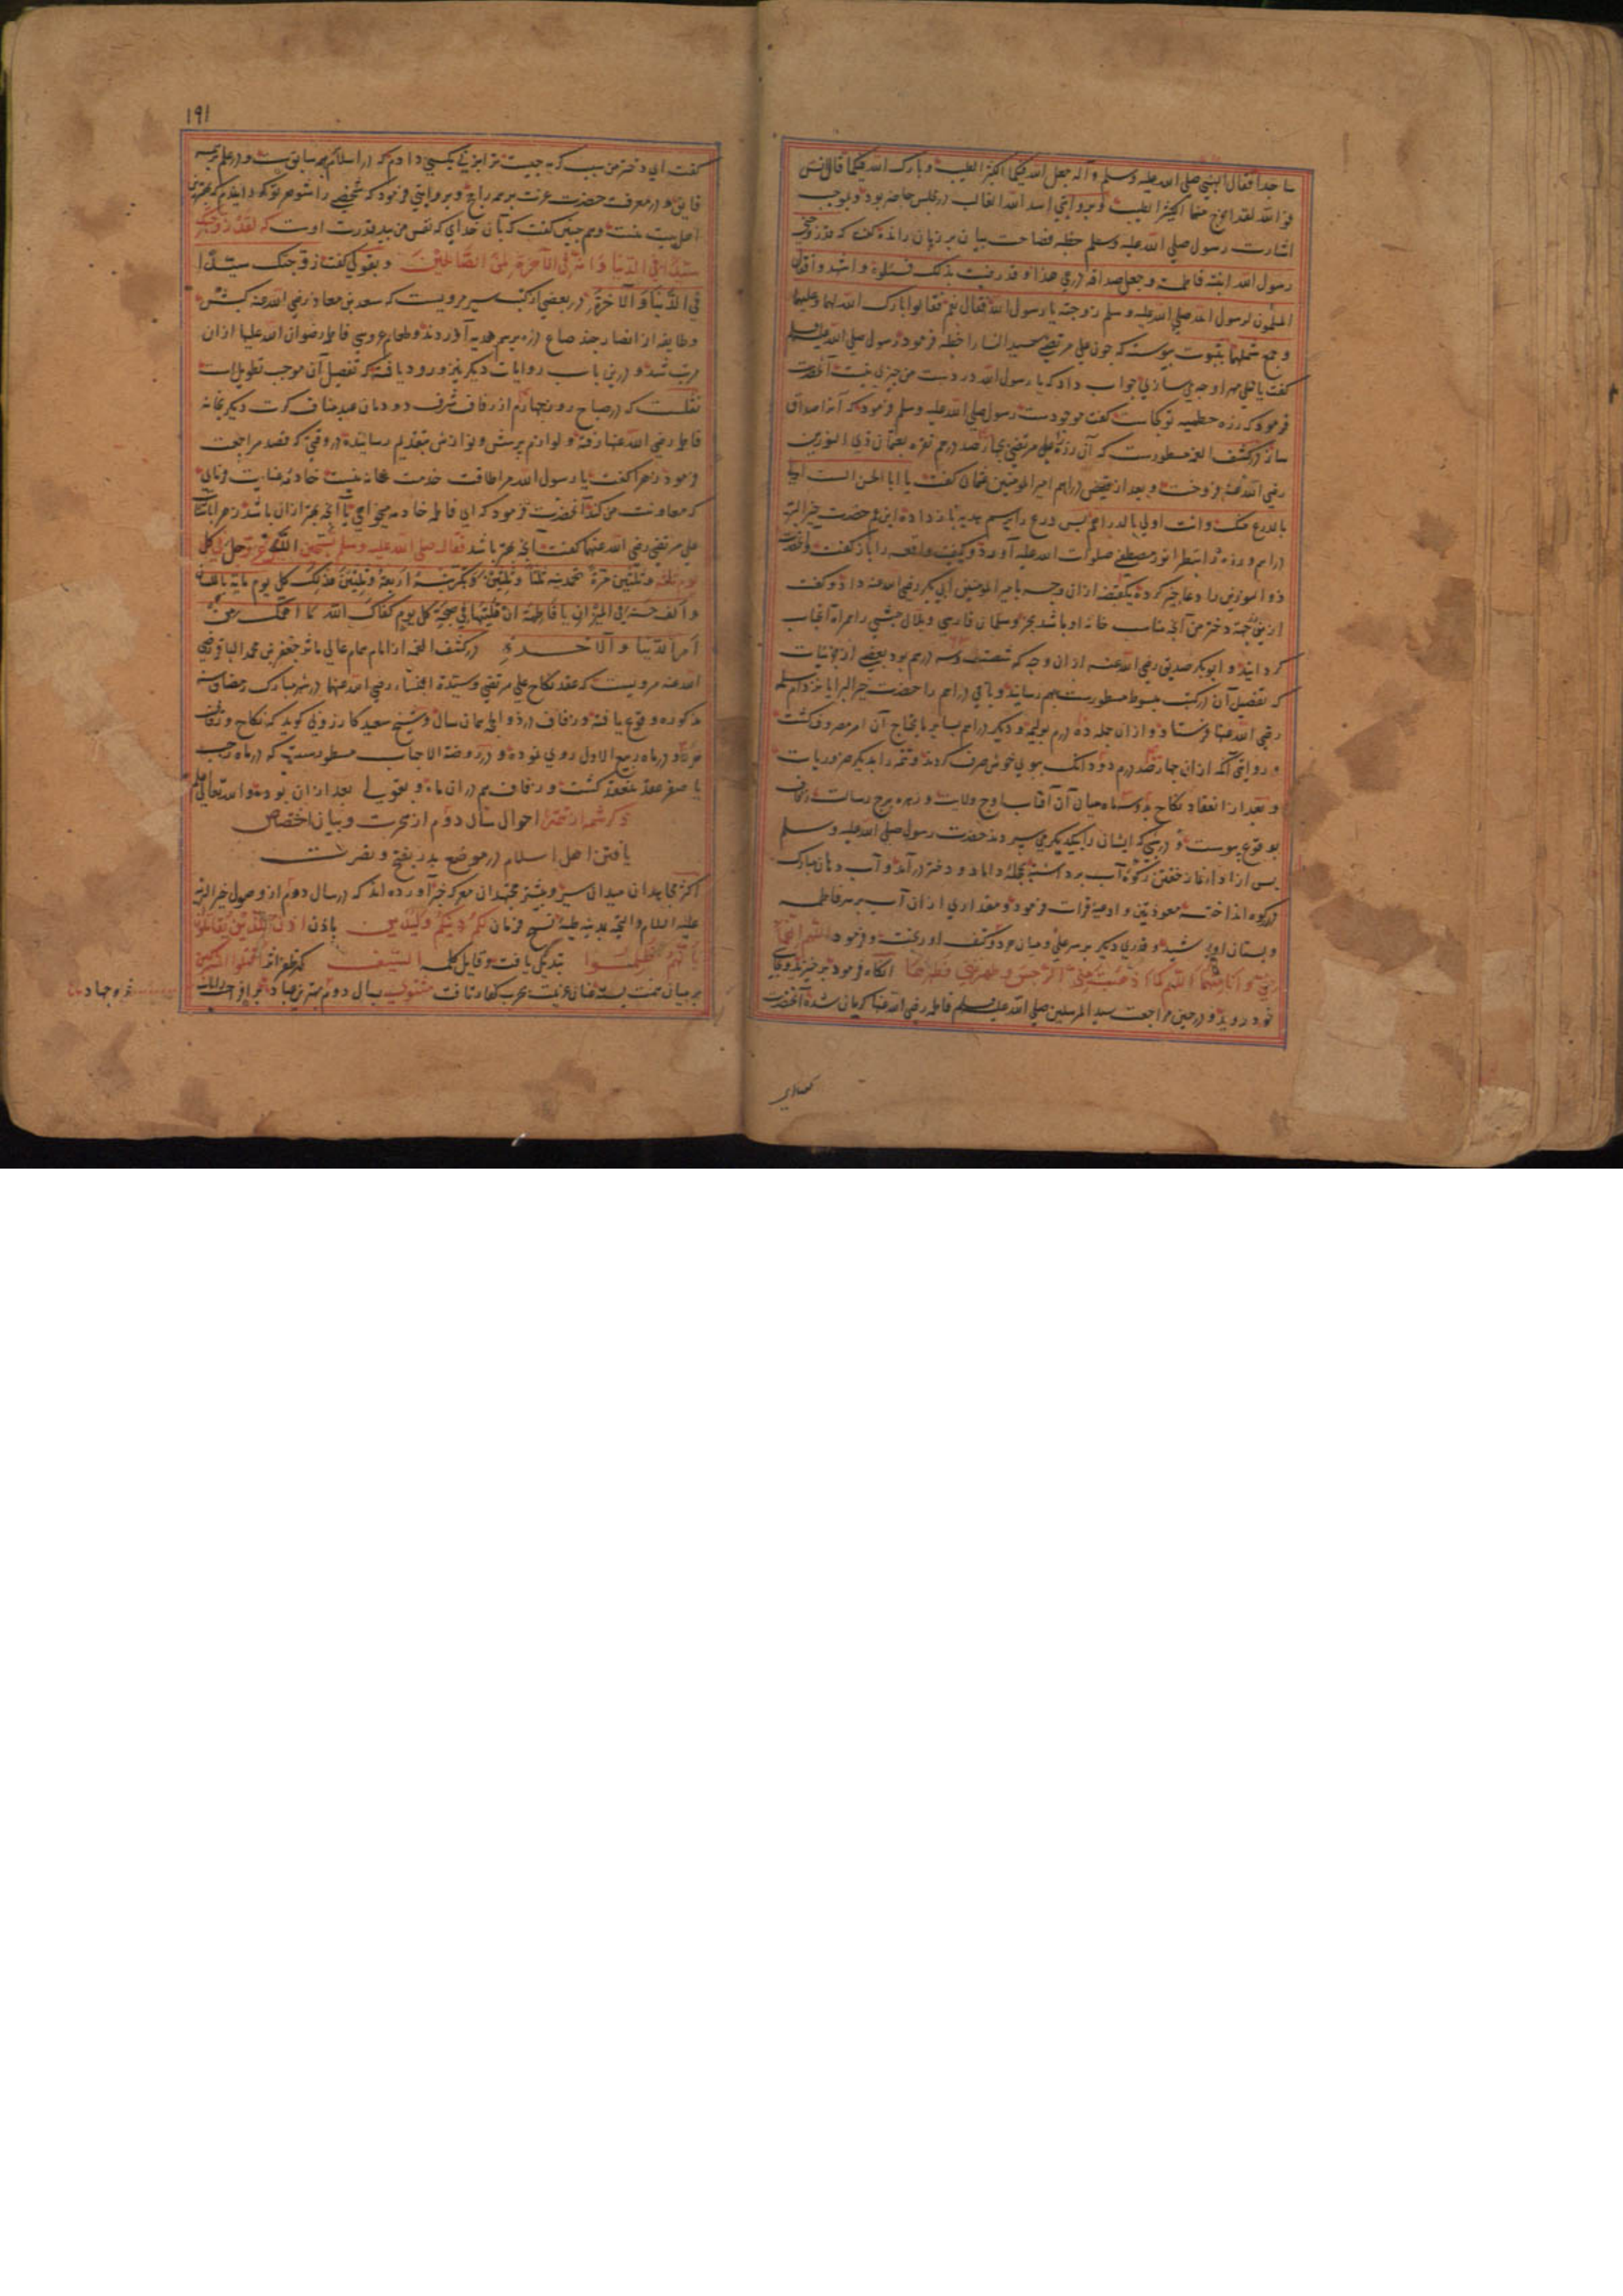 ساجدا فقال النبي صلي الله عليه وسلم و آله جعل الله فيكما الكثير الطيب و بارك الله فيكما قال انس
فو الله لقد اخرج منهما الكثير الطيب و بروايتي اسد الله الغالب در مجلس حاضر بود و بموجب
اشارت رسول صلي الله عليه وسلم خطبه فصاحت بيان بر زبان رانده كفت كه
رسول الله ابنته فاطمة و جعل صداقها درعي هذا و قد رضيت بذلك فسئلوه و اشهدوا فقال
المسلمون لرسول الله صلي الله عليه وسلم زوجته يا رسول الله فقال نعم فقالوا بارك الله لهما و عليهما
و جمع شملهما بثبوت پيوسته كه چون علي مرتضي سيدة النسا را خطبه فرمود رسول صلي الله عليه وسلم
كفت يا علي مهر او چه مي سازي جواب داد كه يا رسول الله در دست من چيزي نيست آنحضرت
فرمود كه زره حطميه تو كجاست كفت موجودست رسول صلي الله عليه وسلم فرمود كه آنرا صداق
ساز در كشف الغمه مسطورست كه آن زره را علي مرتضي بچارصد درهم نقره بعثمان ذي النورين
رضي الله عنه فروخت و بعد از قبض دراهم امير المومنين عثمان كفت يا ابا الحسن الست اولي
بالدرع منك و انت اولي بالدراهم پس درع را برسم هديه باز داد ابن عم حضرت خير البريه
دراهم و زره را بنظر انور مصطفي صلوات الله عليه آورد و كيفيت واقعه را باز كفت و آنحضرت
ذو النورين را دعاء خير كرده يكقبضه ازان وجه با امير المومنين ابي بكر رضي الله عنه داد و كفت
ازين جهة دختر من آنچه مناسب خانه او باشد بخر و سلمان فارسي و بلال حبشي را همراه آنجناب
كردانيد و ابو بكر صديق رضي الله عنه ازان وجه كه شصت و سه درهم بود بعضي از مايحتاجات
كه تفصيل آن در كتب مبسوط مسطورست بهم رسانيد و باقي دراهم را حضرت خير البرايا نزد ام سلمه
رضي الله عنها فرستاد و ازان جمله ده درم بوليمه و ديكر دراهم بساير مايحتاج آن امر مصروف كشت
و روايتي آنكه ازان چارصد درم دو دانك ببوي خوش صرف كردند و تتمه را بديكر ضروريات
و بعد از انعقاد نكاح بدو سه ماه ميان آن آفتاب اوج ولايت و زهره برج رسالت زفاف
بوقوع پيوست و در شبي كه ايشان را بيكديكر مي سپردند حضرت رسول صلي الله عليه وسلم
پس از اداء نماز خفتن ركوه آب برداشته بحجله داماد و دختر درآمد و آب دهان مبارك
در ركوه انداخته معوذتين و ادعيه قرات فرمود و مقداري ازان آب بر سر فاطمه
و پستان او پاشيد و قدري ديكر بر سر علي و ميان هر دو كتف او ريخت و فرمود اللهم انهما
مني و انا منهما اللهم كما اذهبت عني الرجس و طهرتني فطهرهما آنكاه فرمود برخيزيد و بجاي
خود رويد و در حين مراجعت سيد المرسلين صلي الله عليه وسلم فاطمه رضي الله عنها كريان شد آنحضرت
۱۹۱
كفت اي دختر من سبب كريه چيست ترا بزني بكسي دادم كه در اسلام بر همه سابق ست و در علم بر همه
فايق و در معرفت حضرت عزت بر همه راجح و بروايتي فرمود كه شخصي را شوهر تو كردانيدم كه بهترين
اهل بيت منست و هم چنين كفت كه بآن خداي كه نفس من بيد قدرت اوست كه لقد زوجتك
سيدا في الدنيا و انه في الآخرة لمن الصالحين و بقولي كفت زوجتك سيدا
في الدنيا و الآخرة در بعضي از كتب سير مرويست كه سعد بن معاذ رضي الله عنه كبش
و طايفه از انصار چند صاع ذره برسم هديه آوردند و طعام عروسي فاطمه رضوان الله عليها ازان
مرتب شد و درين باب روايات ديكر نيز ورود يافته كه تفصيل آن موجب تطويل است
نقلست كه در صباح روز چهارم از زفاف شرف دودمان عبد مناف كرت ديكر بخانه
فاطمه رضي الله عنها رفته و لوازم پرسش و نوازش بتقديم رسانيده در وقتي كه قصد مراجعت
فرمود زهرا كفت يا رسول الله مرا طاقت خدمت خانه نيست خادمه عنايت فرماي
كه معاونت من كند آنحضرت فرمود كه اي فاطمه خادمه ميخواهي يا آنچه بهتر ازان باشد زهرا باشارت
علي مرتضي رضي الله عنهما كفت آنچه بهتر باشد فقال صلي الله عليه وسلم تسبحين الله عز و جل في كل
يوم ثلثه و ثلثين مرة تحمدينه ثلثا و ثلثين و تكبرينه اربعة و ثلثين فذلك كل يوم ماية باللسان
و الف حسنة في الميزان يا فاطمة ان قلتيها في صبيحة كل يوم كفاك الله ما اهمك من
امر الدنيا و الآخرة در كشف الغمه از امام همام عالي ماثر جعفر بن محمد الباقر رضي
الله عنه مرويست كه عقد نكاح علي مرتضي و سيدة النساء رضي الله عنهما در شهر مبارك رمضان سنه
مذكوره وقوع يافته و زفاف در ذو الحجه همان سال و شيخ سعيد كازروني كويد كه نكاح و زفاف
هر دو در ماه ربيع الاول روي نموده و در روضة الاحباب مسطورست كه در ماه رجب
يا صفر عقد منعقد كشت و زفاف هم دران ماه و بقولي بعد ازان بوده و الله تعالي اعلم
ذكر شمه از تتمه احوال سال دوم از هجرت و بيان اختصاص
يافتن اهل اسلام در موضع بدر بفتح و نصرت
اكثر مجاهدان ميدان سير و بيشتر مجتهدان معركه خبر آورده اند كه در سال دوم از وصول خير البريه
عليه السلام و التحيه بمدينه طيبه نسخ فرمان لكم دينكم و لي دين باذن اذن للذين يقاتلون
بانهم ظلموا تبديل يافت و قايل كلمه السيف كه ظهر انه اقتلوا المشركين
بر ميان همت بسته عنان عزيمت بحرب كفار تافت